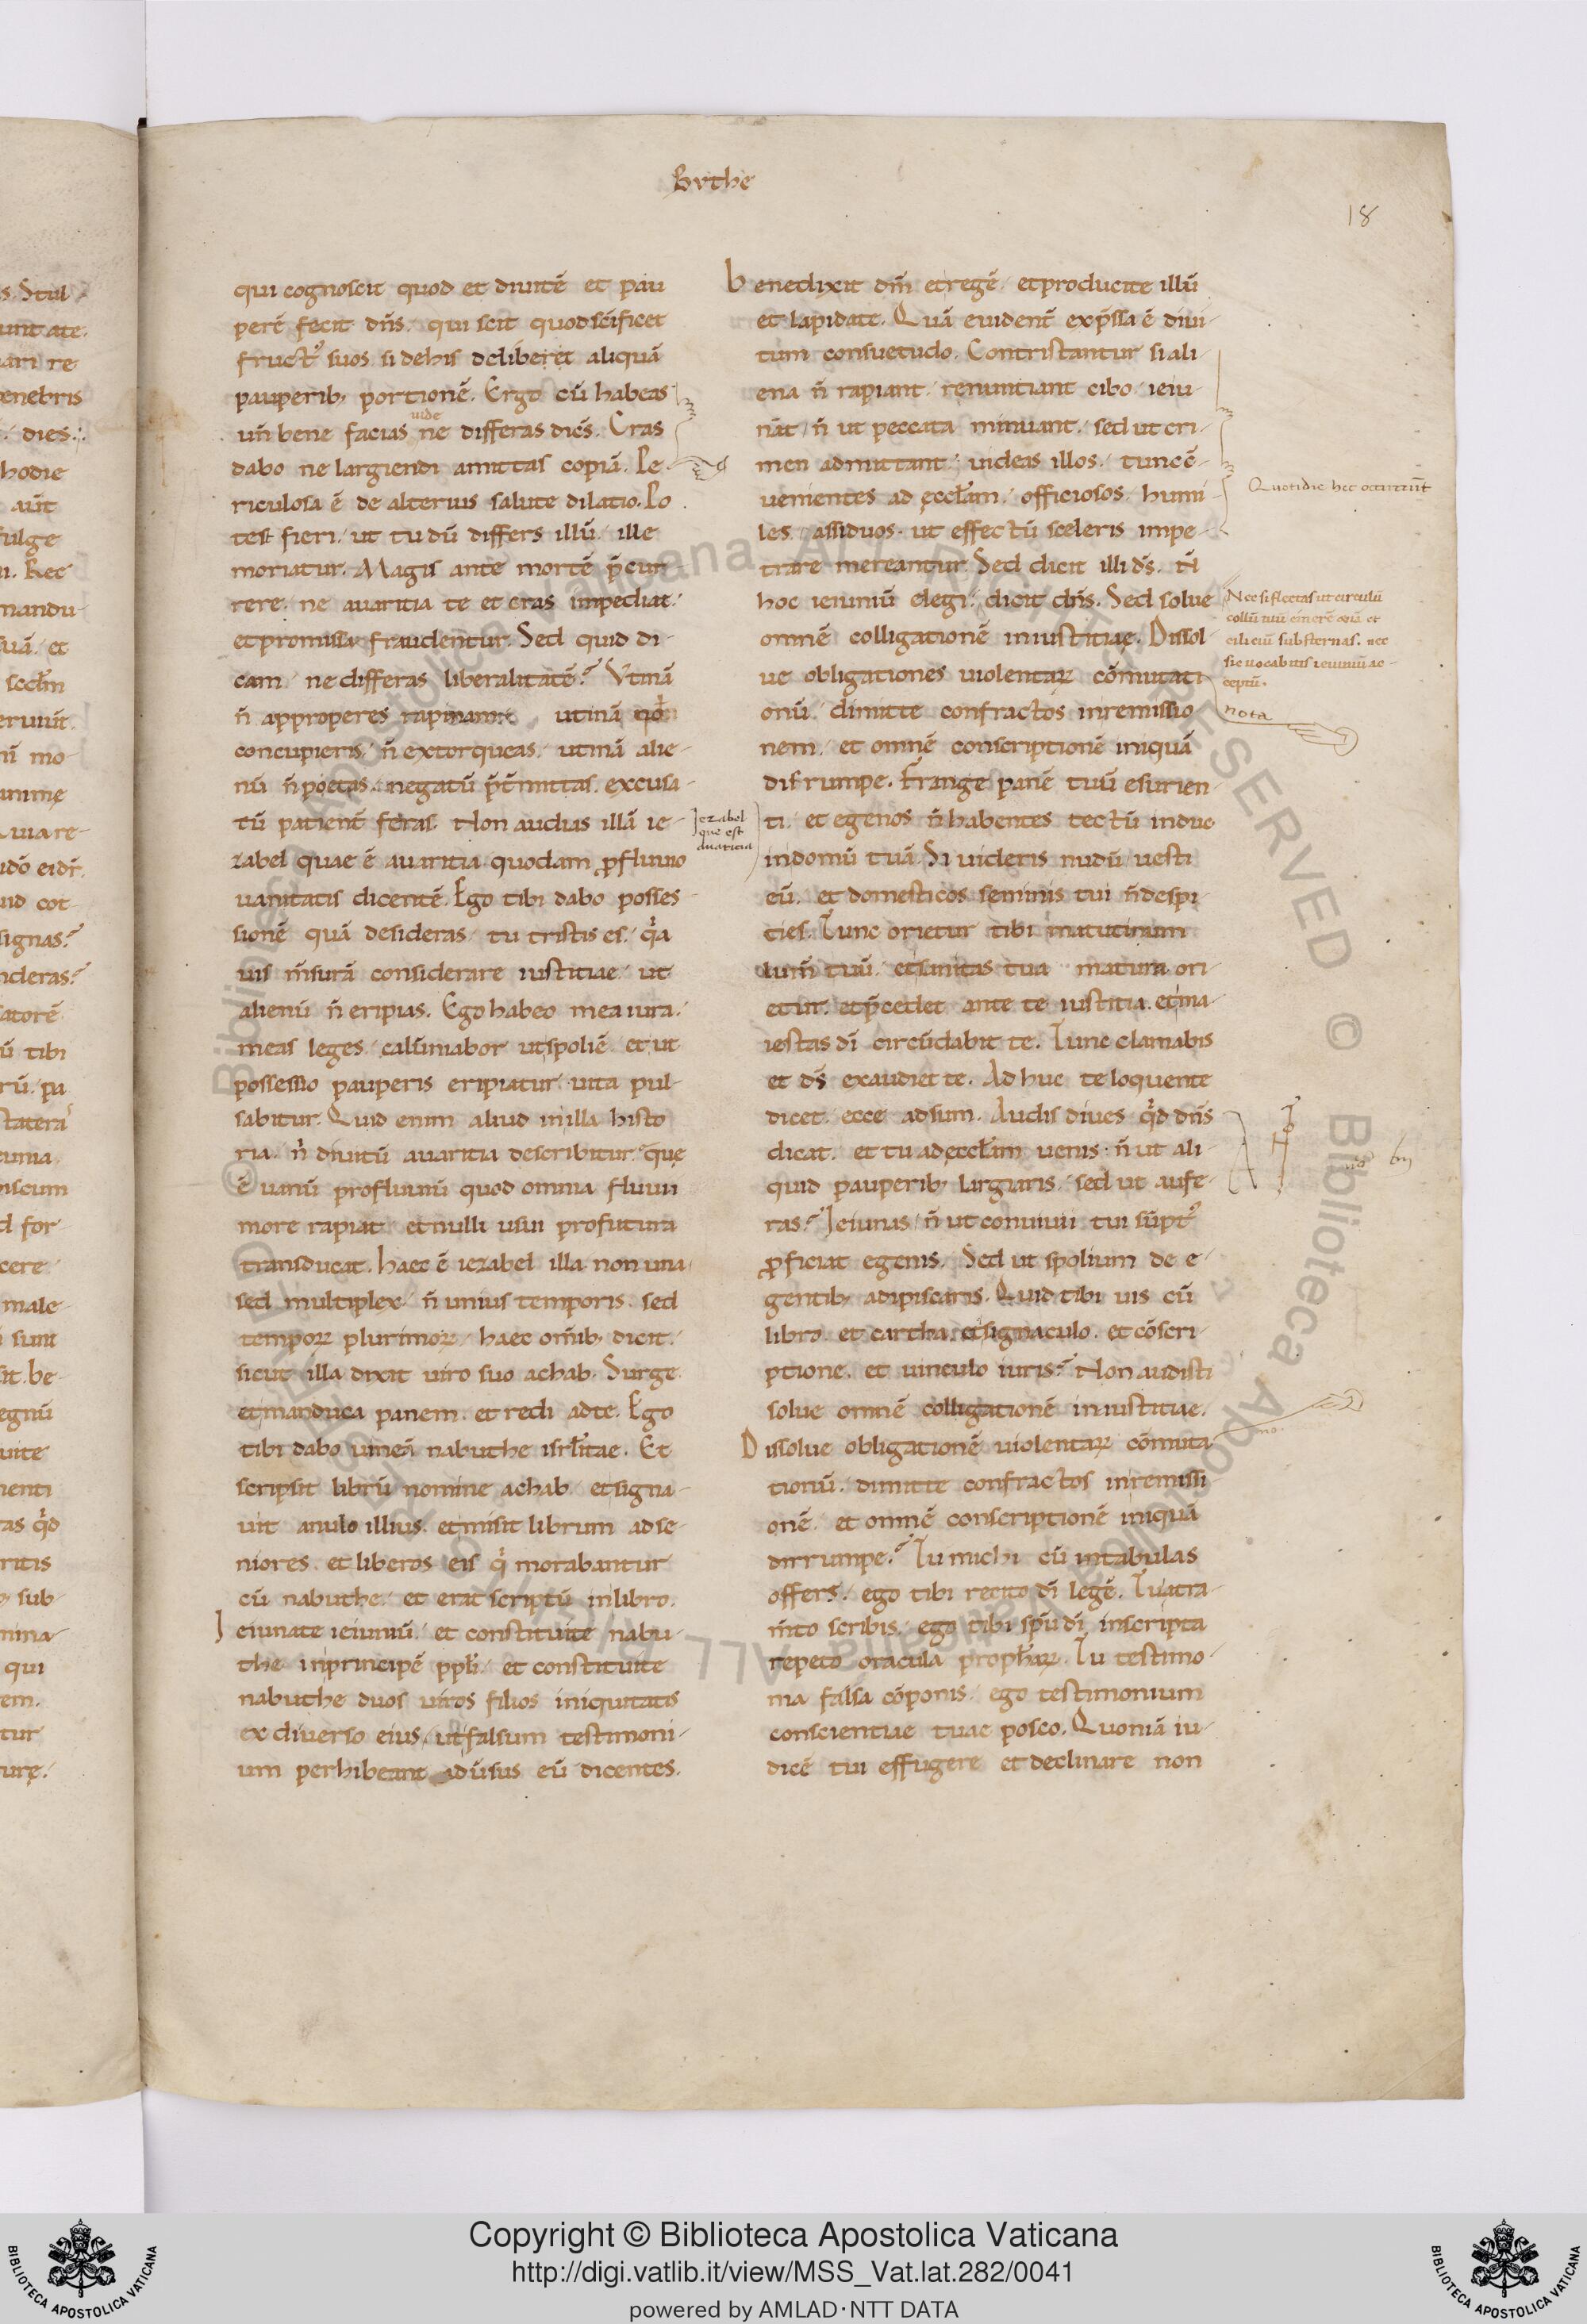 Buthe
18
qui cognoscit quod et diuitē et pau
perē fecit dn̄s. qui scit quod sc̄ificet
fruct᷒ suos. si de his deliberet aliquā
pauperib; portionē. Ergo cū habeas
un̄ bene facias ne differas dicēs. Cras
uide
dabo ne largiendi amittas copiā. Pe-
riculosa ē de alterius salute dilatio. Po
test fieri. ut tu dū differs illū. ille
moriatur. Magis ante mortē p̄cur-
rere. ne auaritia te et cras impediat.
et promissa fraudentur. Sed quid di-
cam ne differas liberalitatē? Utinā
n̄ approperes rapinam. utinā qđ
concupieris. n̄ extorqueas. utinā alie-
nū n̄ poetas. negatū p̄t̄mittas. excusa-
tū patient̄ feras. Non audias illā ie-
zabel quae ē auaritia quodam ꝓfluuio
uanitatis dicentē. Ego tibi dabo posses-
sionē quā desideras. tu tristis es. q̇a
uis m̄surā considerare iustitiae. ut
alienū n̄ eripias. Ego habeo mea iura.
meas leges. calūmabor ut spoliē. et ut
possessio pauperis eripiatur uita pul-
sabitur. Quid enim aliud in illa histo
ria. n̓ diuitū auaritia describitur. q̄ue
ē uanū profluuiū quod omnia fluuii
more rapiat. et nulli usui profutura
transducat. haec ē iezabel illa non una.
sed multiplex. n̄ unius temporis. sed
tempoꝝ plurimoꝝ. haec om̄ib; dicit.
sicut illa dixit uiro suo achab. Surge.
et manduca panem. et redi ad te. Ego
tibi dabo uineā nabuthe isrl̄itae. Et
scripsit librū nomine achab. et signa-
uit anulo illius. et misit librum ad se-
niores. et liberos eis q̇ morabantur
cū nabuthe. et erat scriptū in libro.
Ieiunate ieiuniū. et constituite nabu-
the in principē ppl̄i. et constituite
nabuthe duos uiros filios iniquitatis
ex diuerso eius. ut falsum testimoni-
um perhibeant adūsus eū dicentes.
Iezabel
que est
auaricia
Benedixit dm̄ et regē. et producite illū
et lapidate. Quā euident̄ exp̄ssa ē diui-
tum consuetudo. Contristantur si ali-
ena n̄ rapiant. renuntiant cibo. ieiu
nāt. n̄ ut peccata minuant. sed ut cri-
men admittant. uideas illos. tunc ē-
uenientes ad ęccl̄am. officiosos. humi-
les. assiduos. ut effectū sceleris impe-
trare mereantur. Sed dicit illi dš. N̄
hoc ieiuniū elegi. dicit dn̄s. Sed solue
omnē colligationē iniustitiae. Dissol-
ue obligationes uiolentaꝝ cōmutati
onū. dimitte confractos in remissio
nem. et omnē conscriptionē iniquā
disrumpe. Frange panē tuū esurien-
ti. et egenos n̄ habentes tectū induc
in domū tuā. Si uideris nudū uesti
eū. et domesticos seminis tui n̄ despi-
cies. Tunc orietur tibi matutinum
lum̄ tuū. et sanitas tua matura ori
etur. et p̄cedet ante te iustitia. et ma-
iestas dī circūdabit te. Tunc clamabis
et dš exaudiet te. Ad huc te loquente
dicet. ecce adsum. Audis diues q̇d dn̄s
dicat. et tu ad ęccl̄am uenis. n̄ ut ali-
quid pauperib; largiaris. sed ut aufe-
ras? Ieiunas. n̄ ut conuiuii tui sūpt᷒
ꝓficiat egenis. Sed ut spolium de e-
gentib; adipiscaris. Quid tibi uis cū
libro. et cartha. et signaculo. et cōscri-
ptione. et uinculo iuris? Non audisti
solue omnē colligationē iniustitiae.
Dissolue obligationē uiolentaꝝ cōmuta-
tionū. dimitte confractos in remissi
onē. et omnē conscriptionē iniquā
dirrumpe? Tu michi cū in tabulas
offers. ego tibi recito dī legē. Tu atra-
m̄to scribis. ego tibi sp̄u dī inscripta
repeto oracula proph̄aꝝ. Tu testimo-
nia falsa cōponis. ego testimonium
conscientiae tuae posco. Quoniā iu-
dicē tui effugere et declinare non
Quotidie hec occurrūt
Nec si flectas ut circulū
collū tuū cinerē quā et
ciliciū substernas. nec
sic uocabitis ieiuniū ac-
ceptū.
nota
no.
s. Stul
hodie
dies.
qui
Copyright © Biblioteca Apostolica Vaticana
http://digi.vatlib.it/view/MSS_Vat.lat.282/0041
powered by AMLAD·NTT DATA
BIBLIOTECA APOSTOLICA VATICANA
BIBLIOTECA APOSTOLICA VATICANA